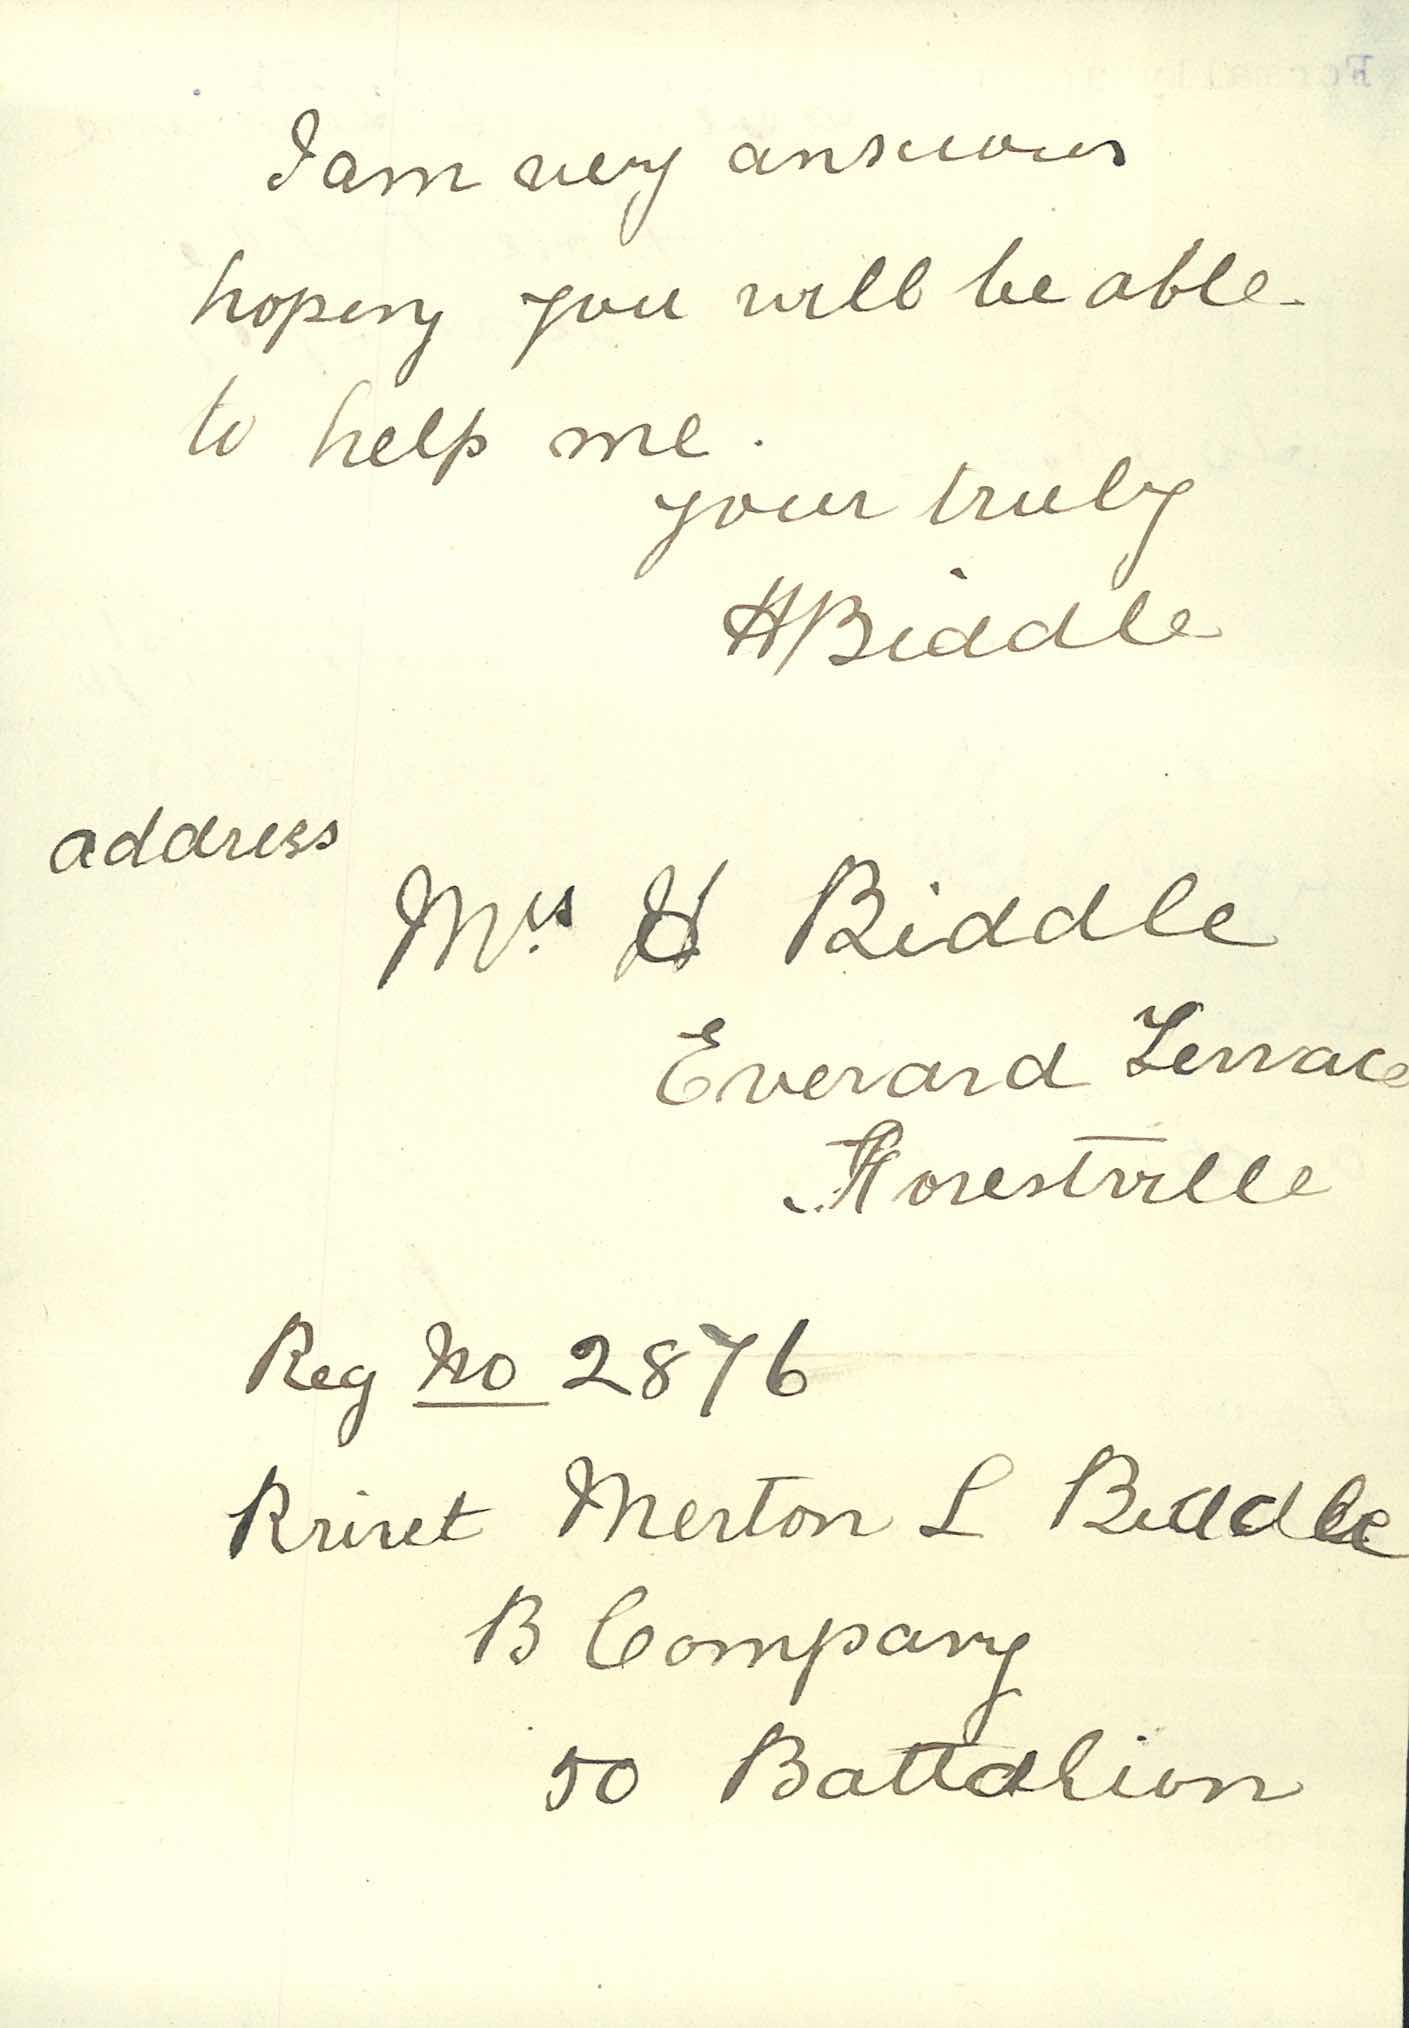 I am very ansuous
hoping you will be able
to help me.
your truly
H Biddle
address
Mrs H Biddle
Everard Terrace
Forestville
Reg No 2876
Privet Merton L Biddle
B Company
50 Battalion